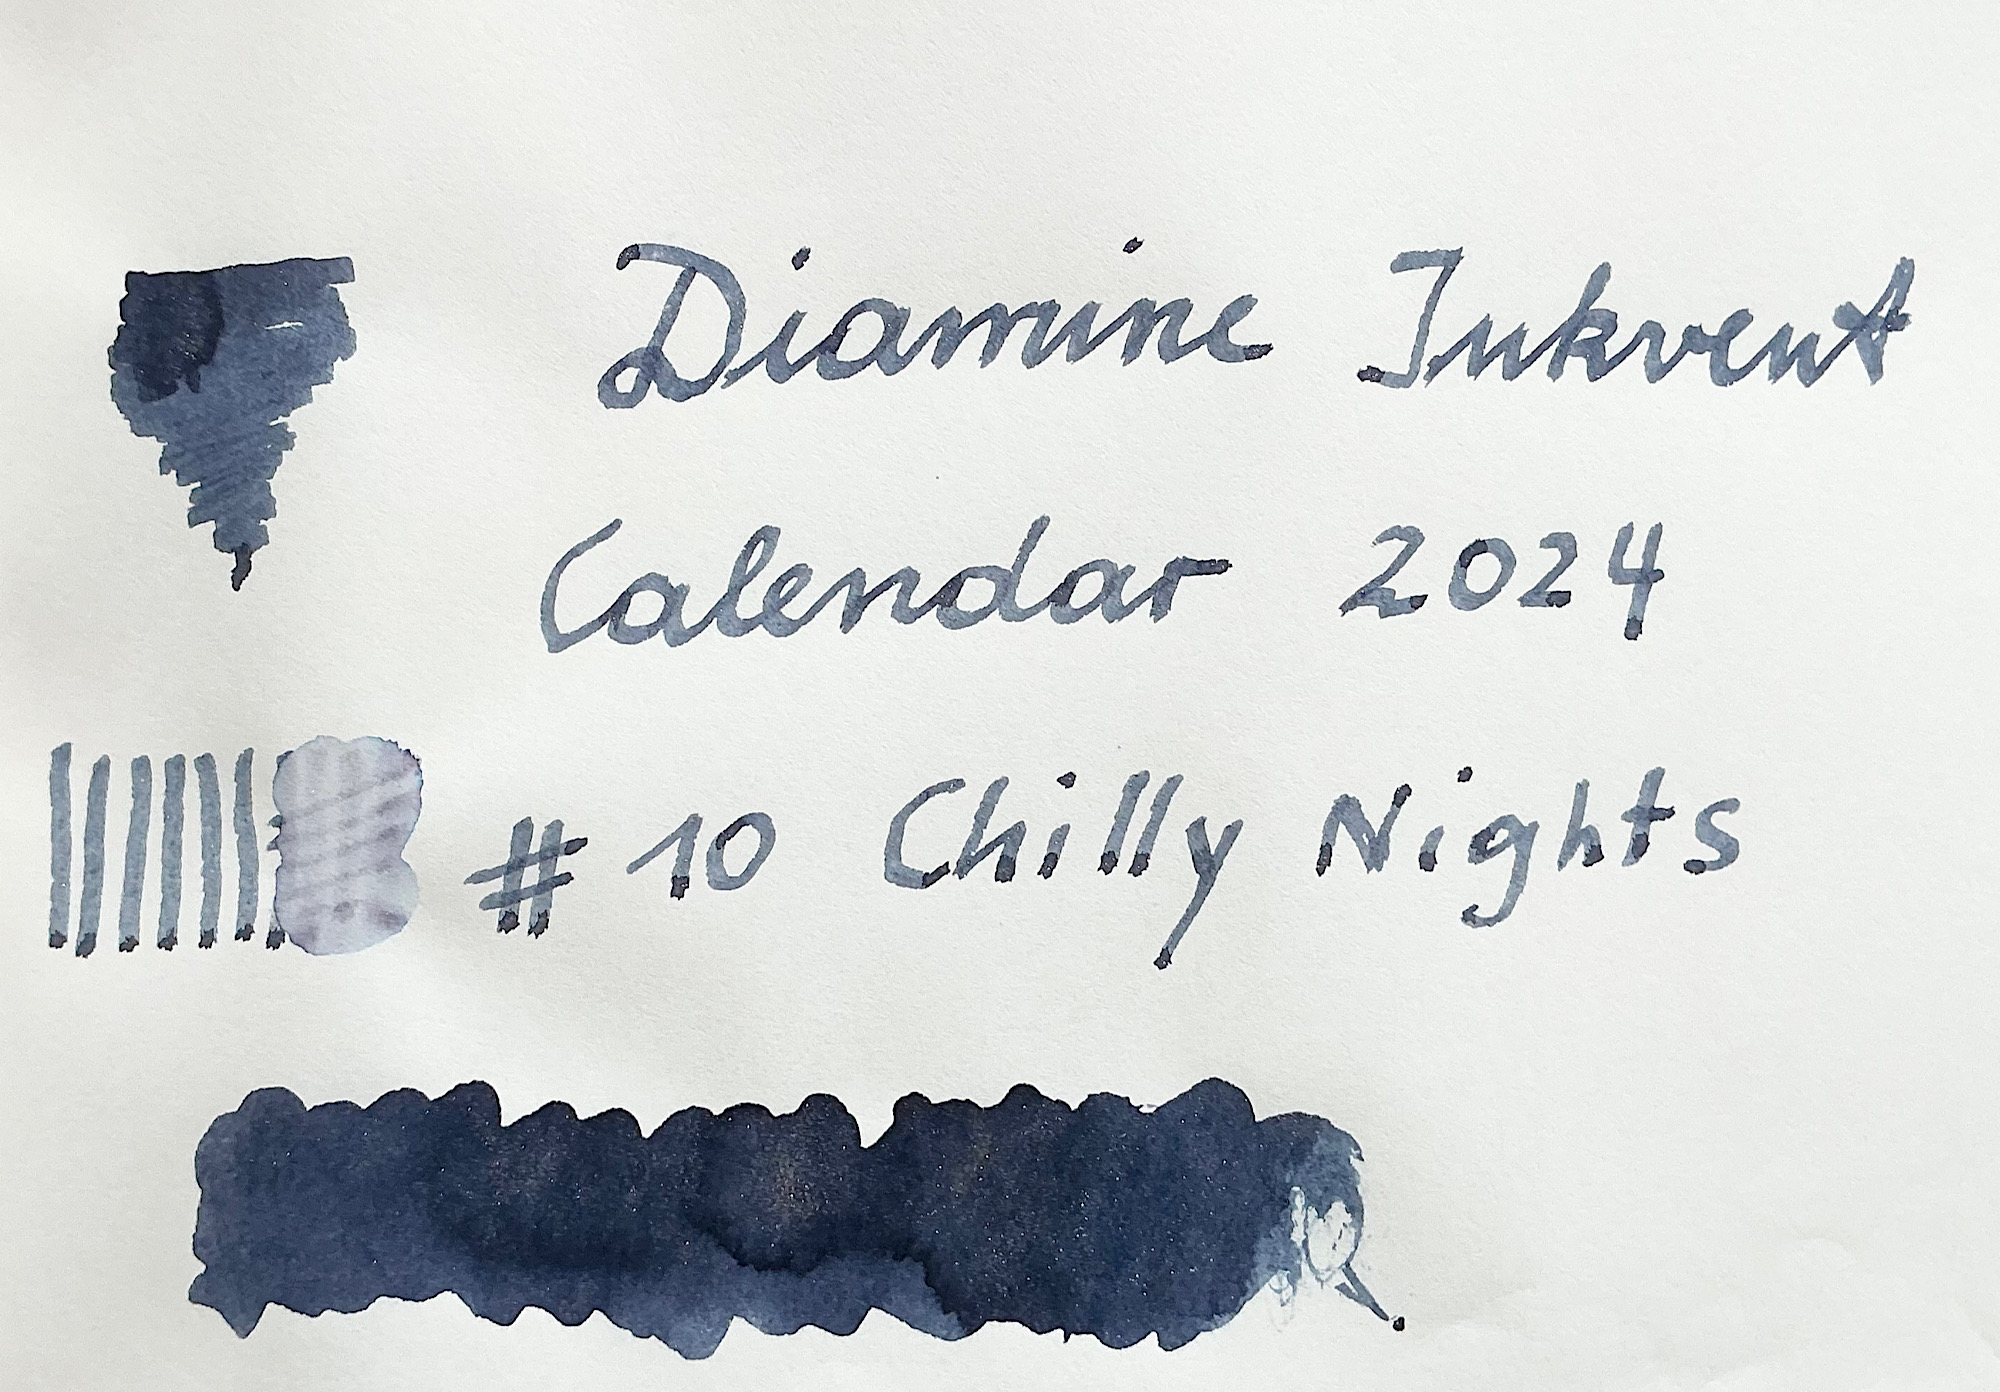 Diamine Inkvent
Calendar 2024
# 10 Chilly Nights